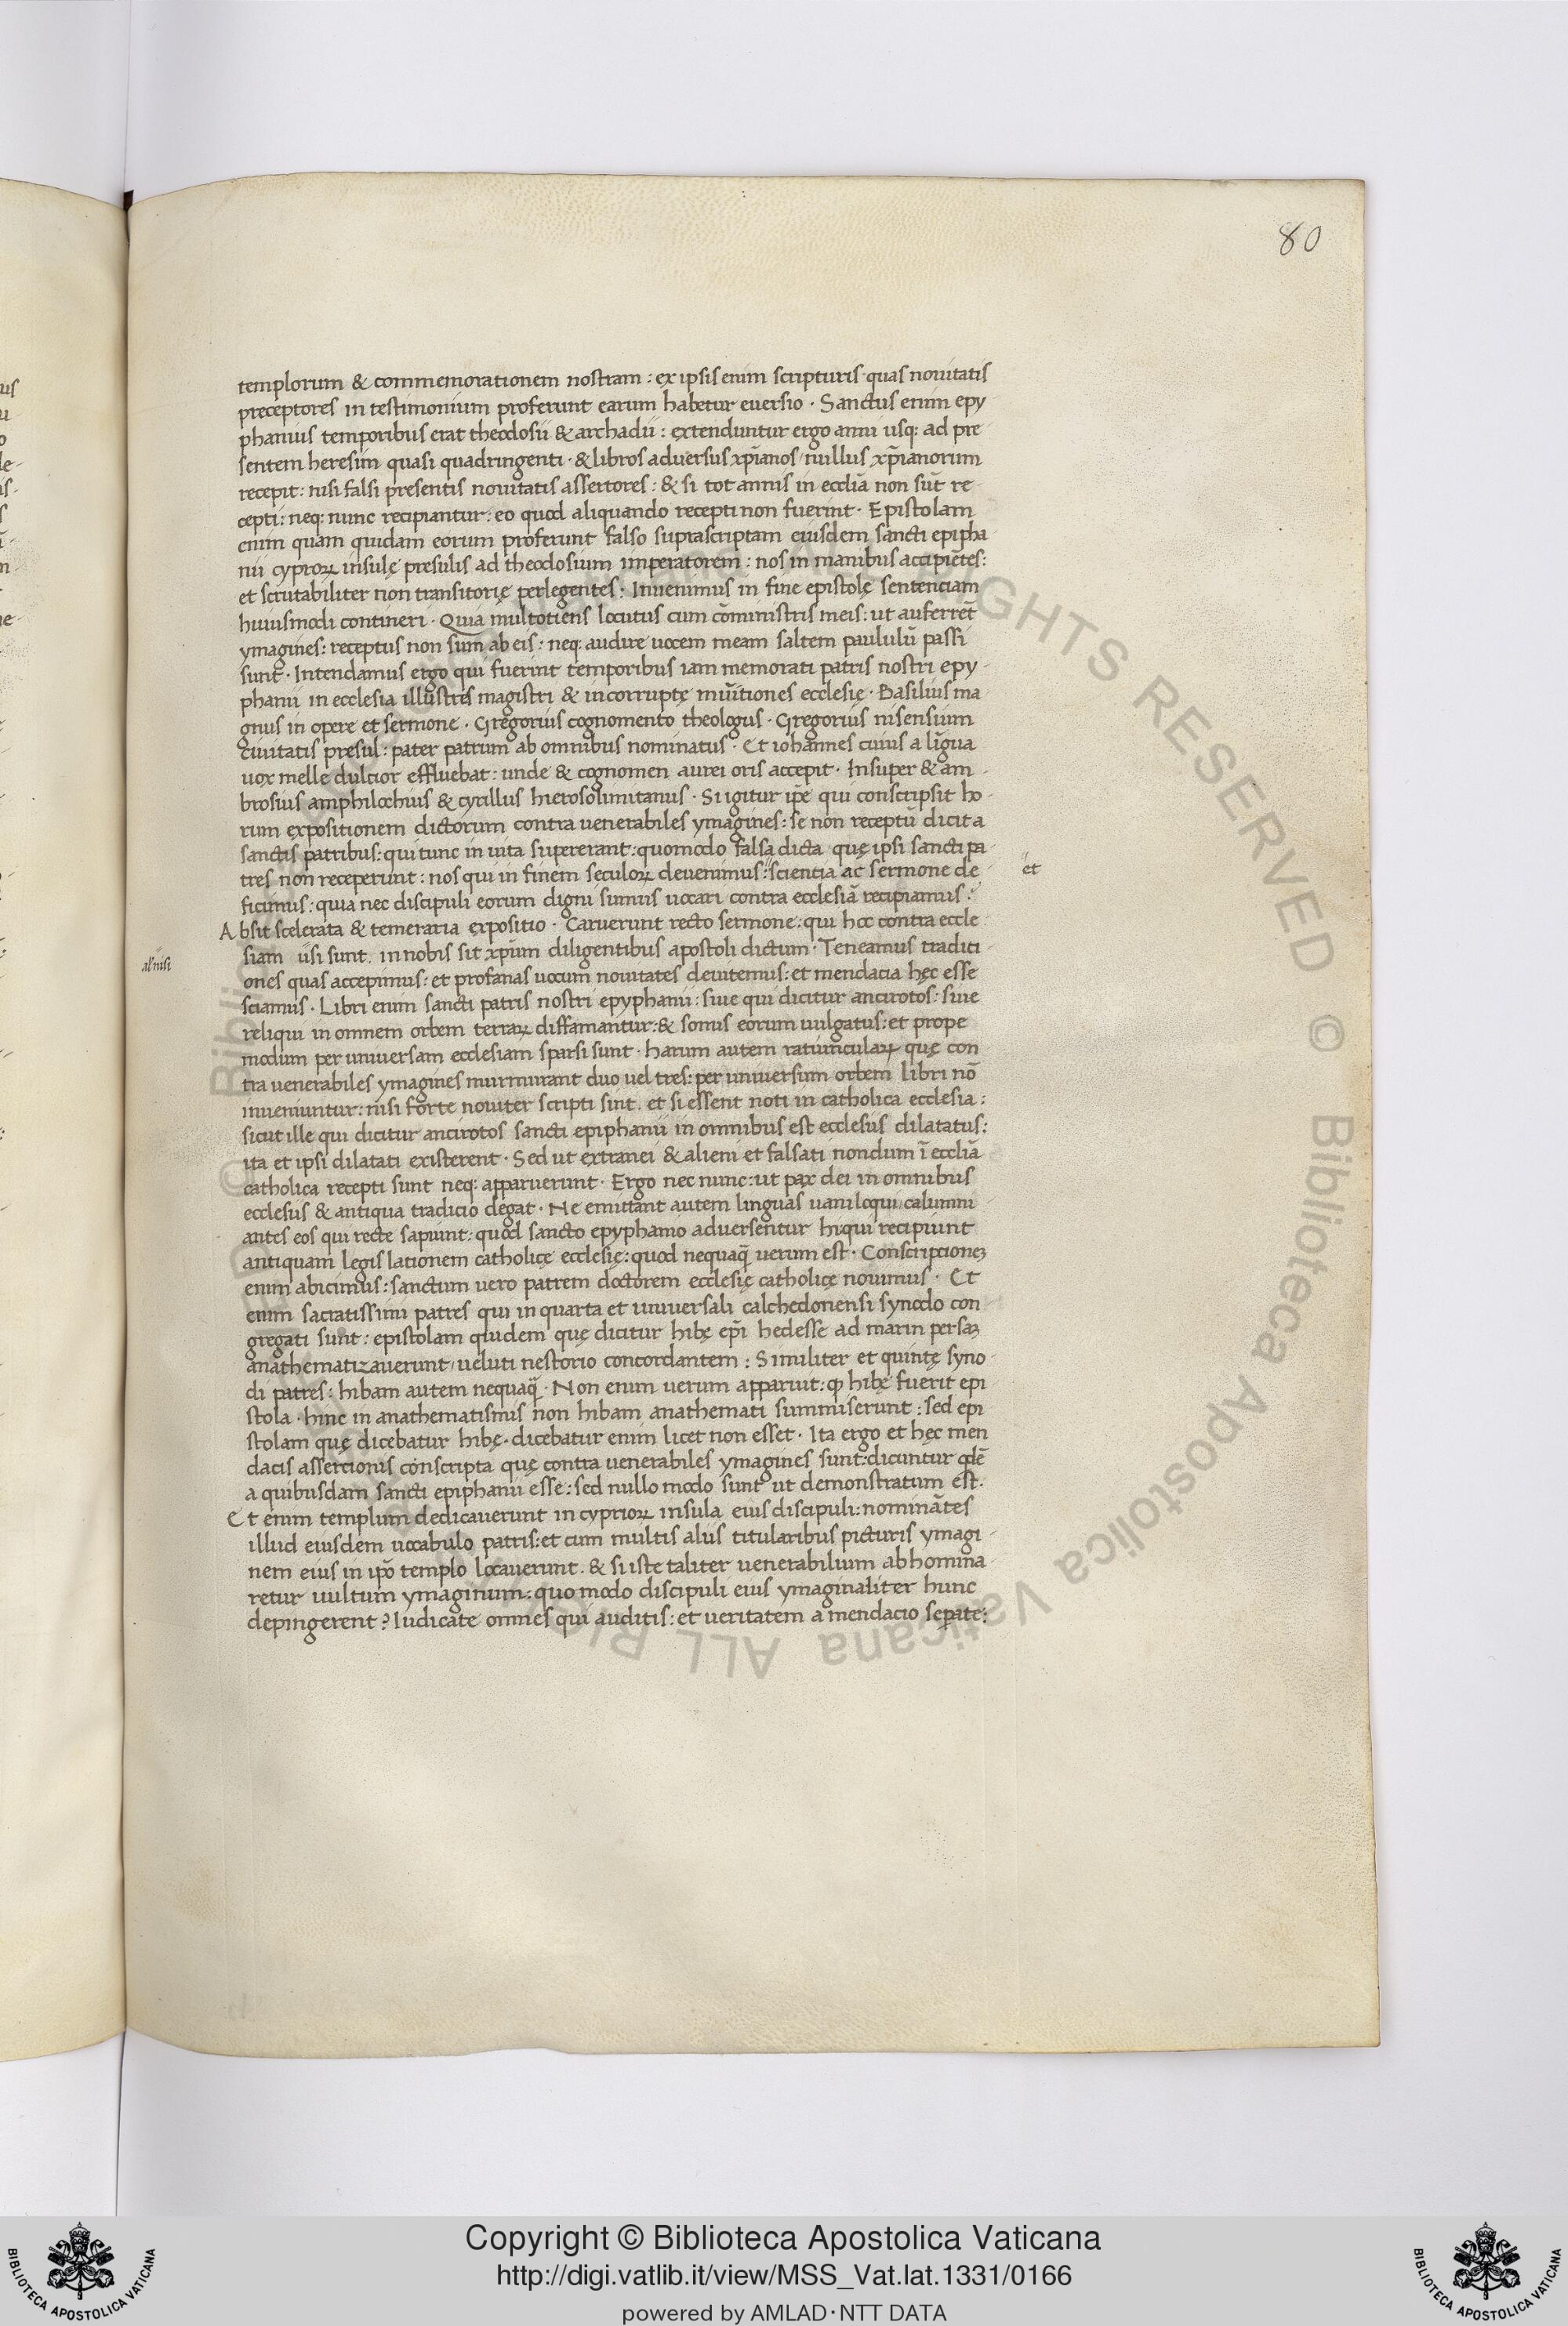 80
templorum & commemorationem nostram : ex ipsis enim scripturis quas nouitatis
preceptores in testimonium proferunt earum habetur euersio · Sanctus enim epy
phanius temporibus erat theodosii & archadii : extenduntur ergo anni usq: ad pre
sentem heresim quasi quadringenti · & libros aduersus xp̄ianos nullus xp̄ianorum
recepit : nisi falsi presentis nouitatis assertores : & si tot annis in eccliā non sūt re
cepti : neq: nunc recipiantur : eo quod aliquando recepti non fuerint · Epistolam
enim quam quidam eorum proferunt falso suprascriptam eiusdem sancti epipha
nii cyproꝝ insulę presulis ad theodosium imperatorem : nos in manibus accipiētes :
et scrutabiliter non transitorię perlegentes : Inuenimus in fine epistolę sentenciam
huiusmodi contineri · Quia multotiens locutus cum cōministris meis : ut auferrēt
ymagines : receptus non sum ab eis : neq: audire uocem meam saltem paululū passi
sunt · Intendamus ergo qui fuerint temporibus iam memorati patris nostri epy-
phanii in ecclesia illustres magistri & incorruptę mūitiones ecclesię · Basilius ma
gnus in opere et sermone · Gregorius cognomento theologus · Gregorius nisensium
ciuitatis presul : pater patrum ab omnibus nominatus · Et iohannes cuius a līgua
uox melle dulcior effluebat : unde & cognomen aurei oris accepit · Insuper & am-
brosius amphilochius & cyrillus hierosolimitanus · Si igitur ip̄e qui conscripsit ho-
rum expositionem dictorum contra uenerabiles ymagines : se non receptū dicit a
sanctis patribus : qui tunc in uita supererant : quomodo falsa dicta quę ipsi sancti pa-
tres non receperunt : nos qui in finem seculoꝝ deuenimus : scientia ac sermone de-
et
ficimus : quia nec discipuli eorum digni sumus uocari contra ecclesiā recipiamus :
Absit scelerata & temeraria expositio · Caruerunt recto sermone : qui hoc contra eccle
siam usi sunt. in nobis sit xp̄um diligentibus apostoli dictum · Teneamus traditi-
al' nisi
ones quas accepimus : et profanas uocum nouitates deuitemus : et mendacia hęc esse
sciamus · Libri enim sancti patris nostri epyphanii : siue qui dicitur ancirotos : siue
reliqui in omnem orbem terraꝝ diffamantur : & sonus eorum uulgatus : et prope
modum per uniuersam ecclesiam sparsi sunt · harum autem ratiuncularꝝ quę con
tra uenerabiles ymagines murmurant duo uel tres : per uniuersum orbem libri nō
inueniuntur : nisi forte nouiter scripti sint. et si essent noti in catholica ecclesia :
sicut ille qui dicitur ancirotos sancti epiphanii in omnibus est ecclesiis dilatatus :
ita et ipsi dilatati existerent · Sed ut extranei & alieni et falsati nondum ī eccliā
catholica recepti sunt neq: apparuerunt · Ergo nec nunc : ut pax dei in omnibus
ecclesiis & antiqua tradicio degat · Ne emittant autem linguas uaniloqui calumni-
antes eos qui recte sapiunt : quod sancto epyphamo aduersentur hi: qui recipiunt
antiquam legis lationem catholicę ecclesię : quod nequaq̄ uerum est · Conscriptionez
enim abicimus : sanctum uero patrem doctorem ecclesię catholicę nouimus · Et
enim sacratissimi patres qui in quarta et uniuersali calchedonensi synodo con
gregati sunt : epistolam quidem quę dicitur hibę ep̄i hedesse ad marin persaꝫ
anathematizauerunt, ueluti nestorio concordantem : Similiter et quintę syno-
di patres : hibam autem nequaq̄ · Non enim uerum apparuit : ꝙ hibę fuerit epi
stola · hinc in anathematismis non hibam anathemati summiserunt : sed epi
stolam quę dicebatur hibę · dicebatur enim licet non esset · Ita ergo et hęc men
dacis assertionis conscripta quę contra uenerabiles ymagines sunt : dicuntur qdē
a quibusdam sancti epiphanii esse : sed nullo modo sunt ut demonstratum est.
Et enim templum dedicauerunt in cyprioꝝ insula eius discipuli : nominātes
illud eiusdem uocabulo patris : et cum multis aliis titularibus picturis ymagi-
nem eius in ip̄o templo locauerunt. & si iste taliter uenerabilium abhomina
retur uultum ymaginum : quo modo discipuli eius ymaginaliter hunc
depingerent ? Iudicate omnes qui auditis : et ueritatem a mendacio sepate :
Copyright © Biblioteca Apostolica Vaticana
http://digi.vatlib.it/view/MSS_Vat.lat.1331/0166
powered by AMLAD·NTT DATA
BIBLIOTECA APOSTOLICA VATICANA
BIBLIOTECA APOSTOLICA VATICANA